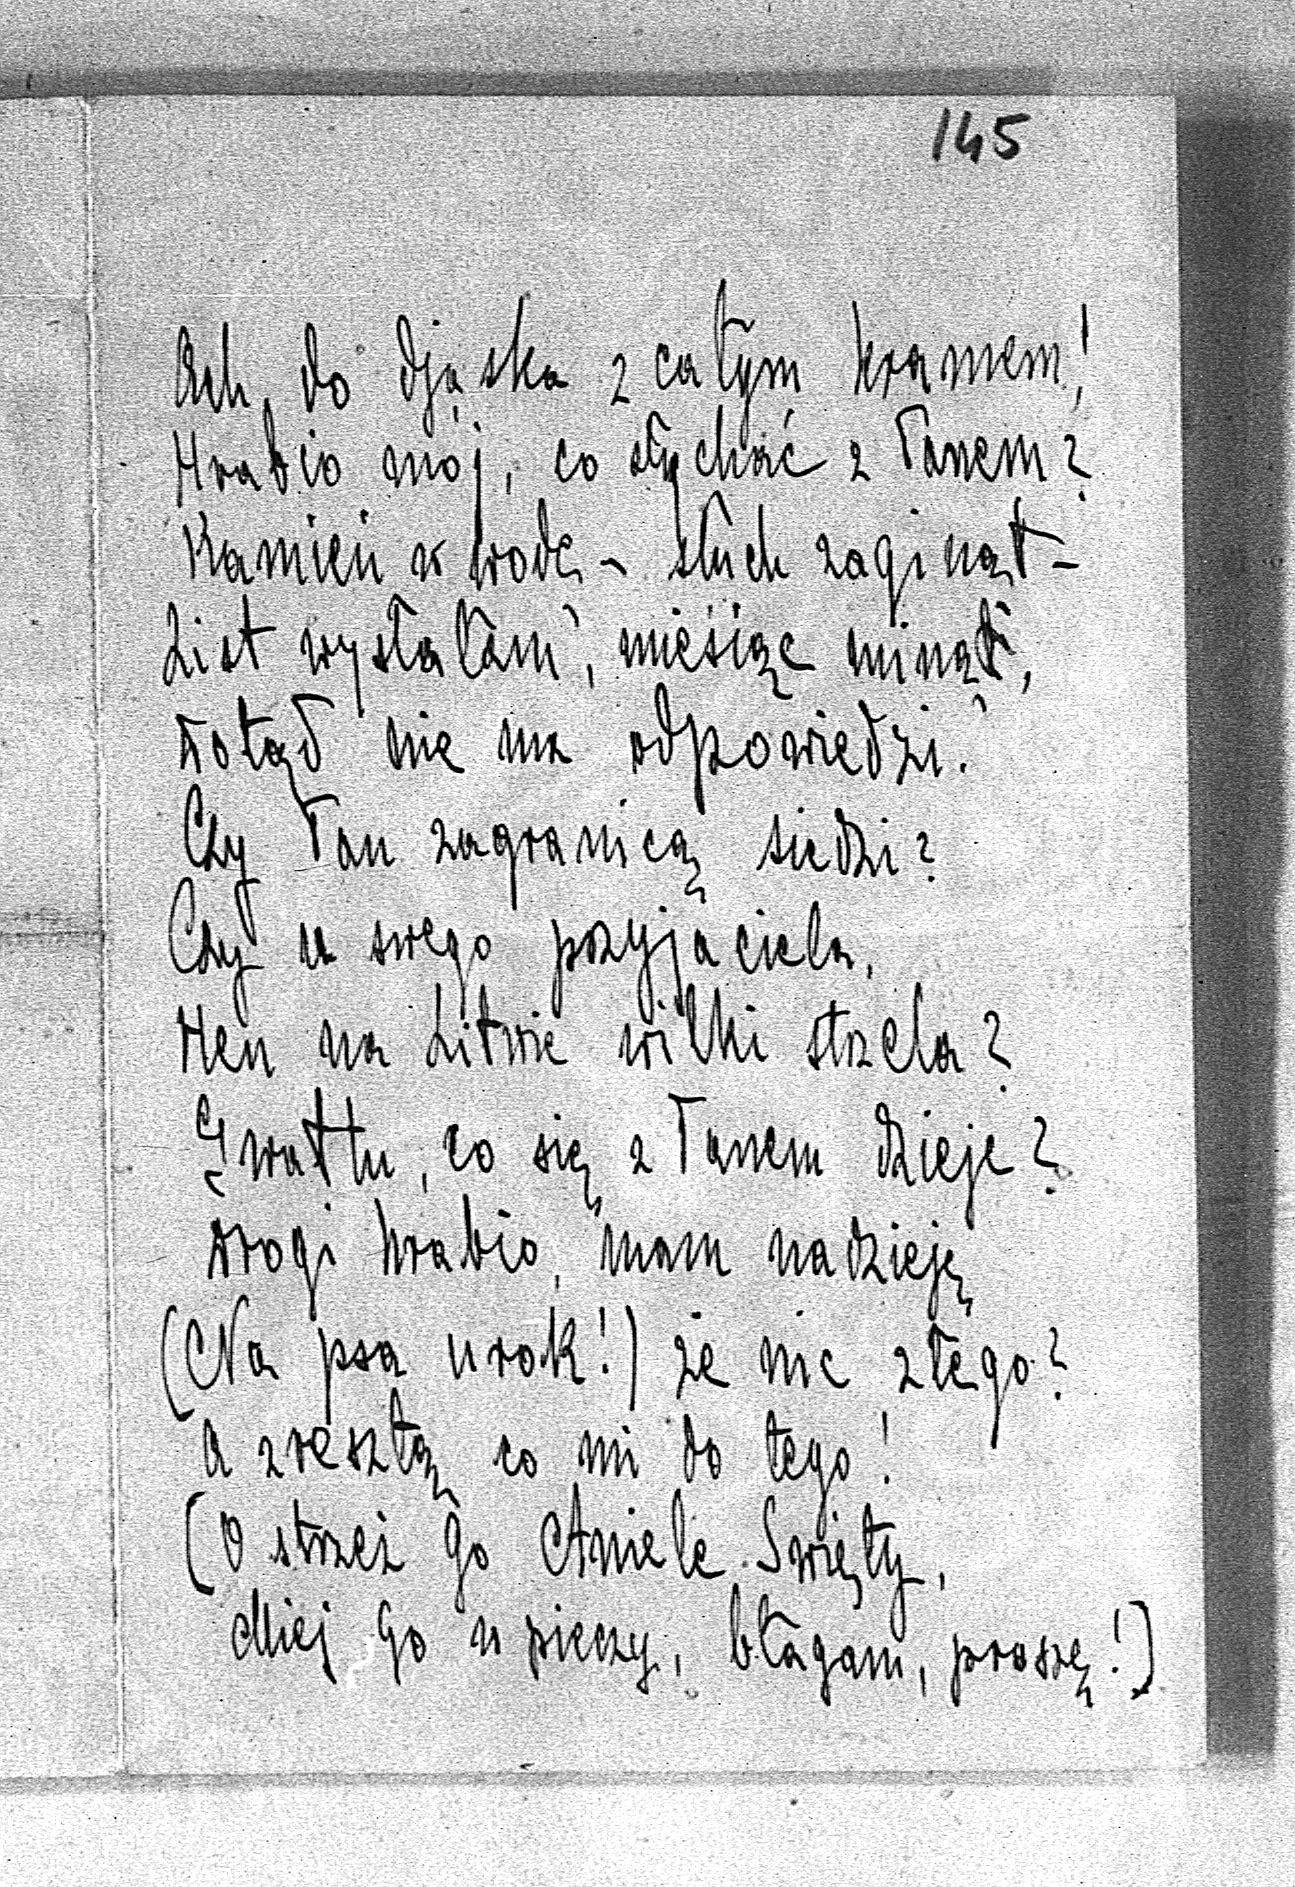 145
Ach, do djaska z całym kramem!
Hrabio mój, co słychać z Panem?
Kamień w wodę – słuch zaginął –
List wysłałam, miesiąc minął,
Dotąd nie ma odpowiedzi.
Czy Pan zagranicą siedzi?
Czy u swego przyjaciela,
Hen na Litwie wilki strzela?
Gwałtu, co się z Panem dzieje?
Drogi hrabio, mam nadzieję
(Na psa urok!) że nic złego?
A zresztą co mi do tego!
(O strzeż go Aniele Święty,
Miej go w pieczy, błagam, proszę!)